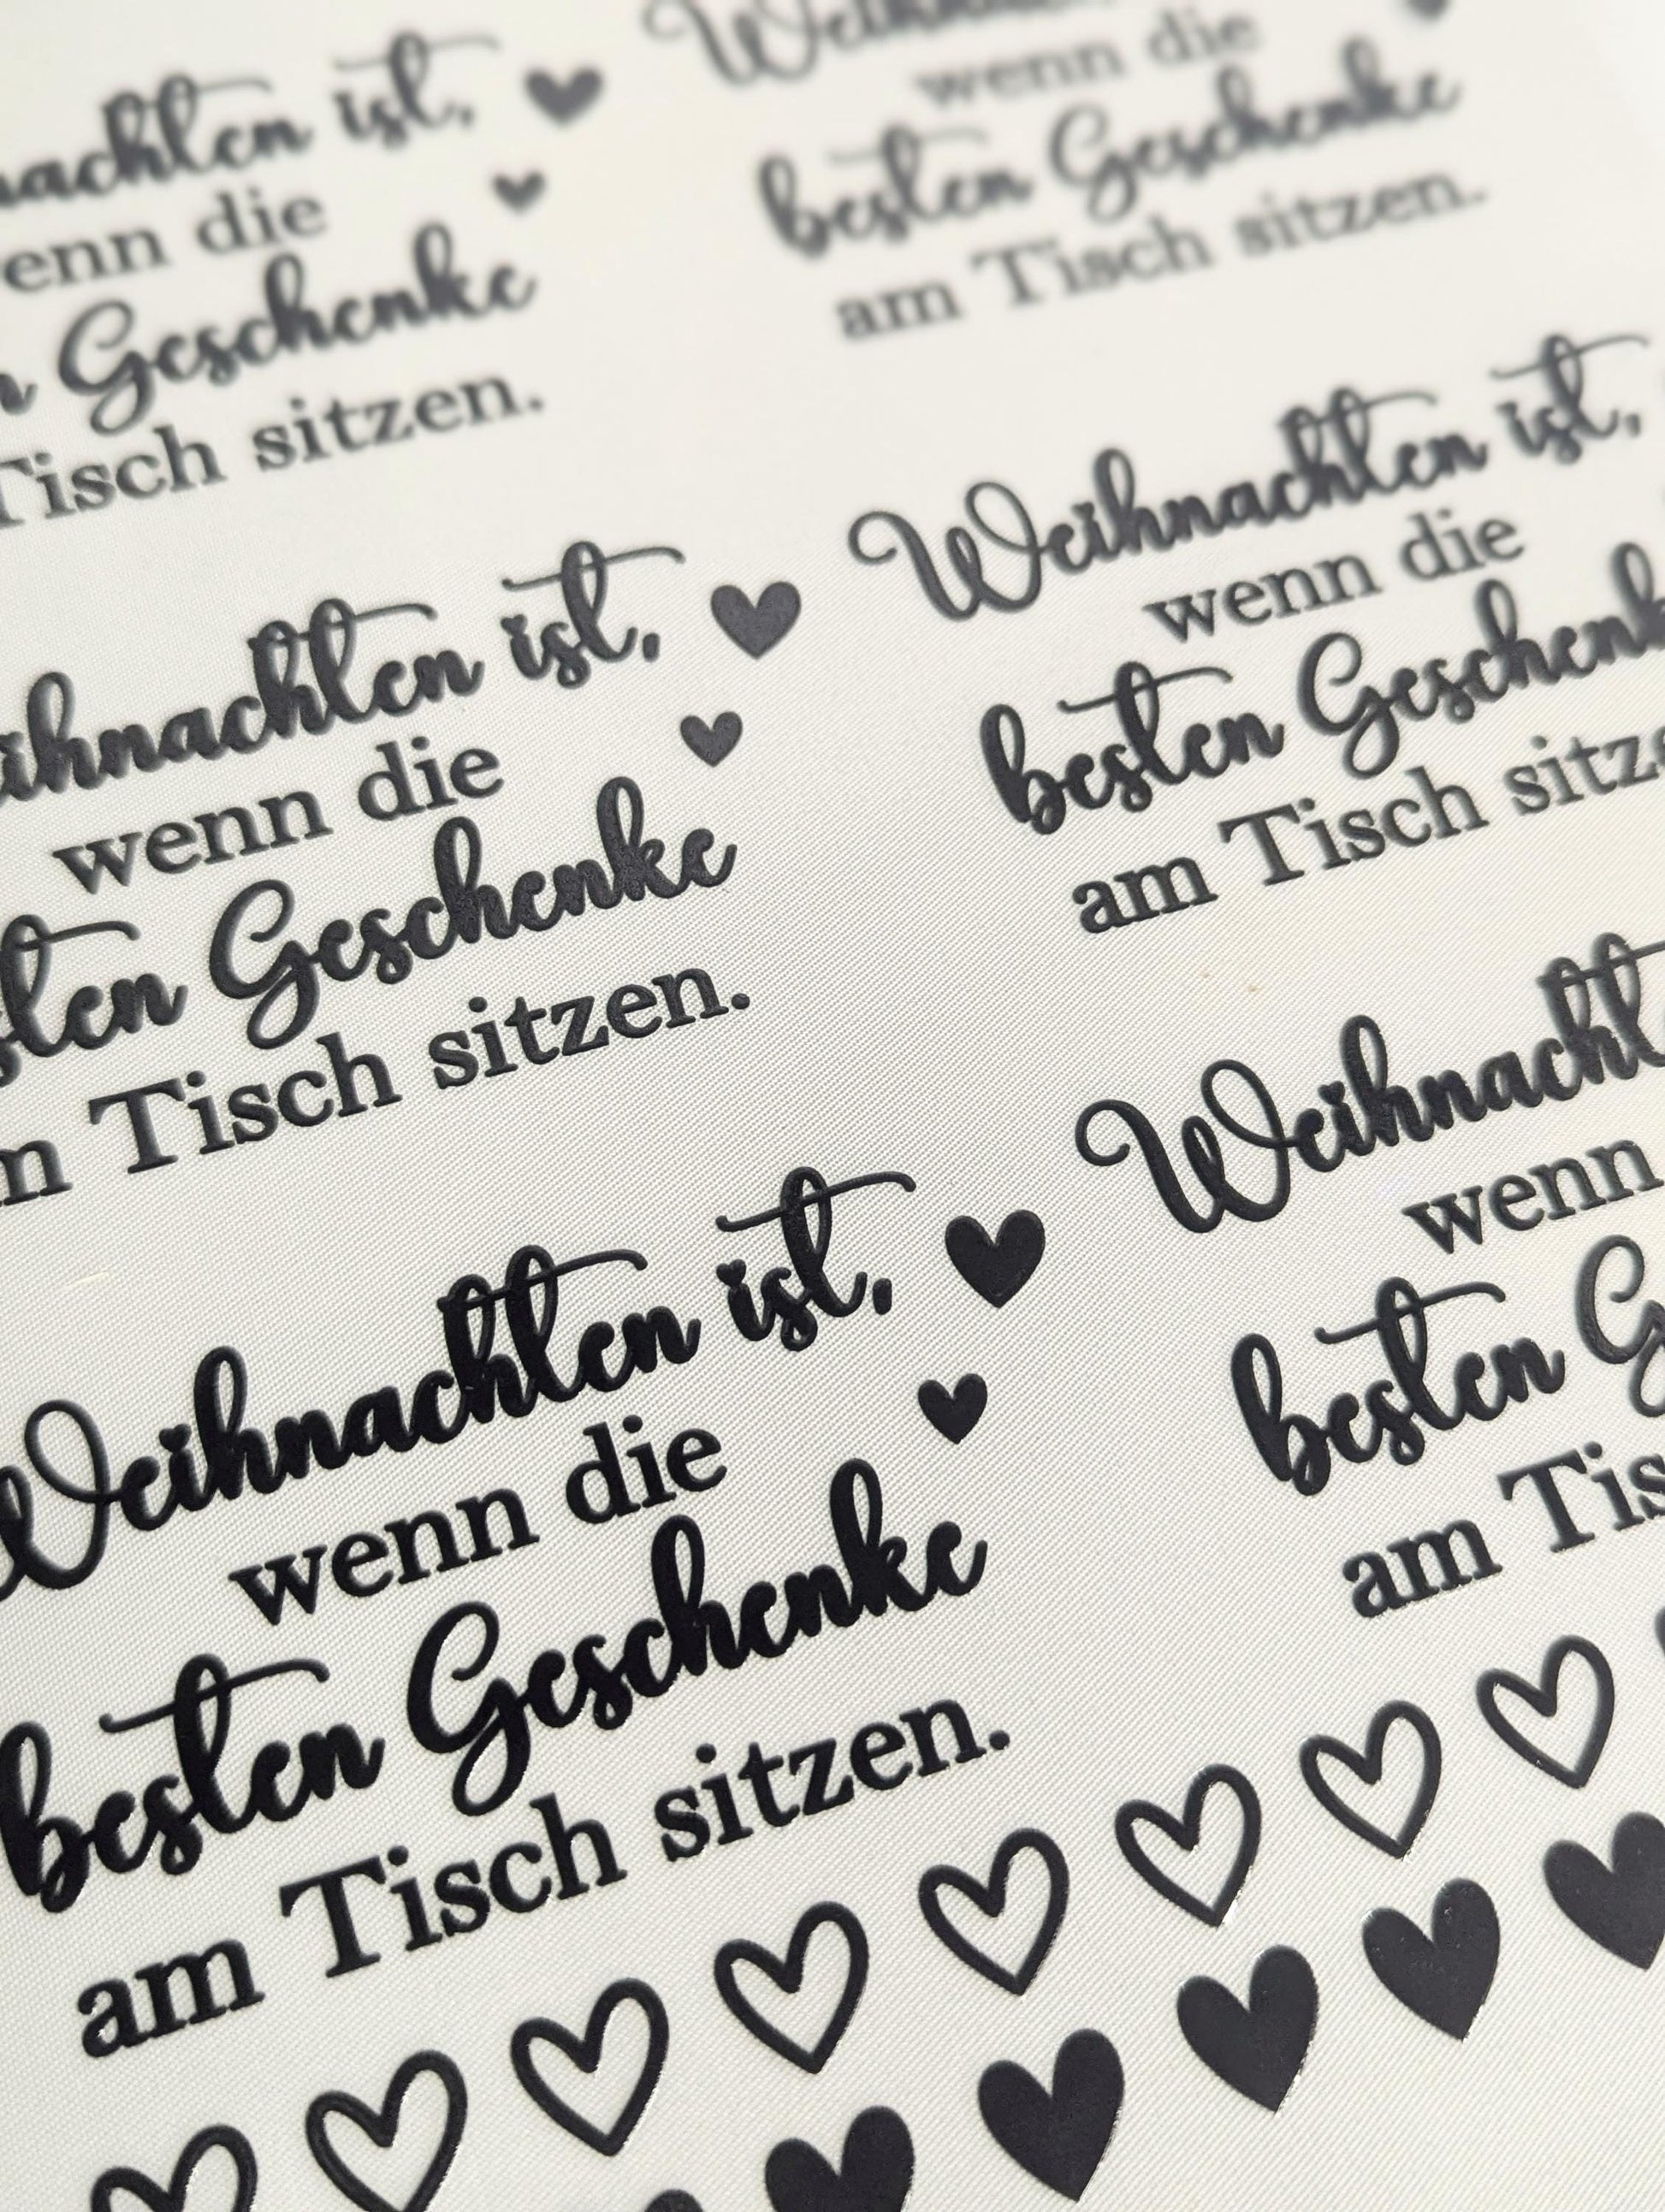 nachten ist,
enn die
n Geschenke
Tisch sitzen.
Weihnachten
wenn die
besten Geschenke
am Tisch sitzen.
ihnachten ist,
wenn die
sten Geschenke
m Tisch sitzen.
Weihnachten ist,
wenn die
besten Geschenk
am Tisch sitze
Weihnachten ist,
wenn die
besten Geschenke
am Tisch sitzen.
Weihnacht
wenn
besten G
am Tis